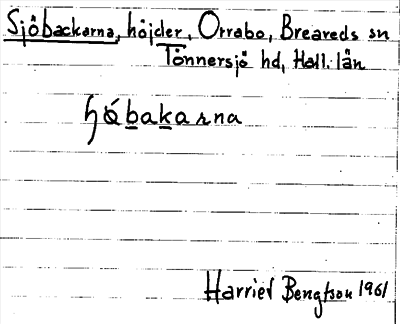 Sjöbackarna, höjder, Orrabo, Breareds sn
Tönnersjö hd, Hall. län
Harriet Bengtson 1961